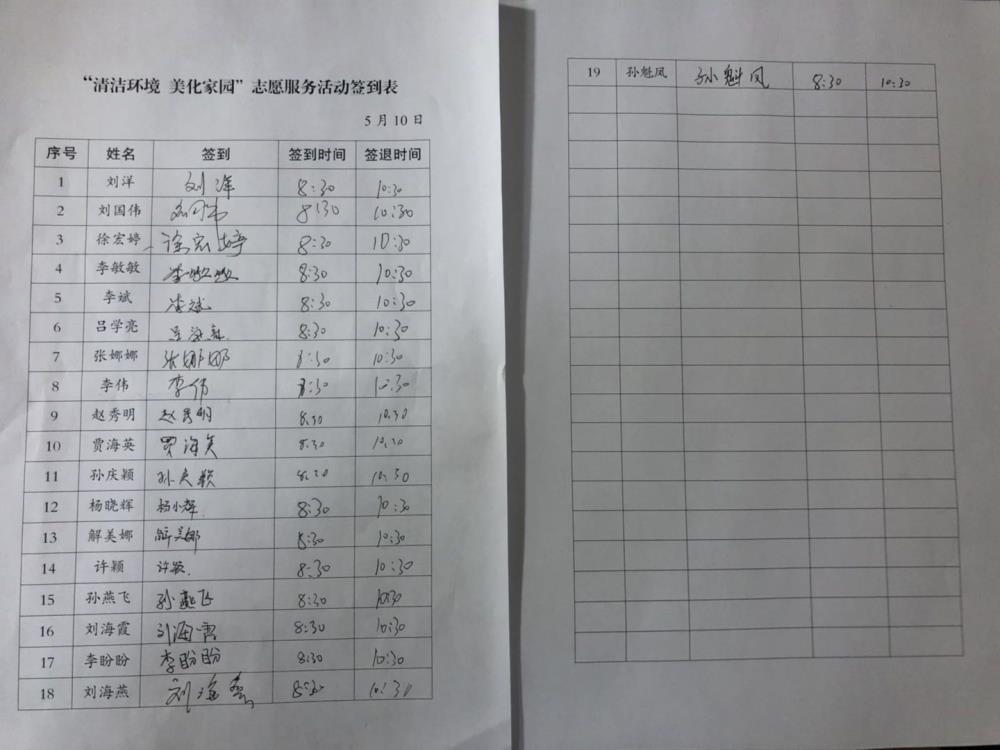 “清洁环境 美化家园”志愿服务活动签到表
5月10日
序号 姓名 签到 签到时间 签退时间
1 刘洋 刘洋 8:30 10:30
2 刘国伟 刘国伟 8:30 10:30
3 徐宏婷 徐宏婷 8:30 10:30
4 李敏敏 李敏敏 8:30 10:30
5 李斌 李斌 8:30 10:30
6 吕学亮 8:30 10:30
7 张娜娜 张娜娜 8:30 10:30
8 李伟 李伟 8:30 10:30
9 赵秀明 赵秀明 8:30 10:30
10 贾海英 贾海英 8:30 10:30
11 孙庆颖 孙庆颖 8:30 10:30
12 杨晓辉 杨小辉 8:30 10:30
13 解美娜 解美娜 8:30 10:30
14 许颖 许颖 8:30 10:30
15 孙燕飞 孙燕飞 8:30 10:30
16 刘海霞 刘海霞 8:30 10:30
17 李盼盼 李盼盼 8:30 10:30
18 刘海燕 刘海燕 8:30 10:30
19 孙魁凤 孙魁凤 8:30 10:30